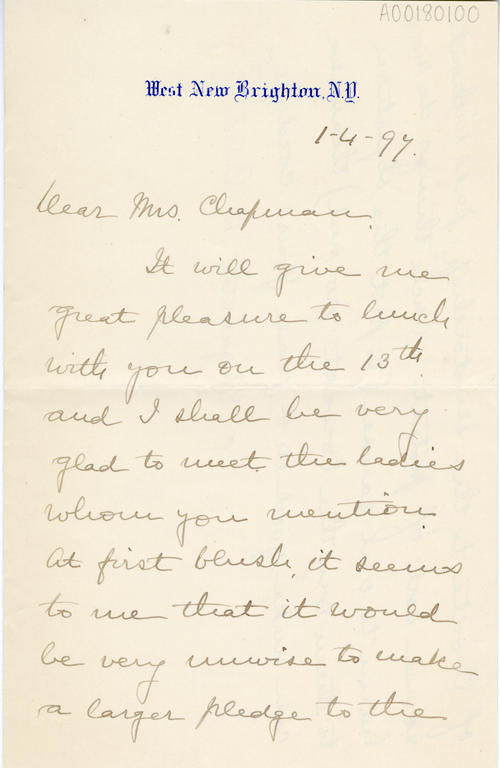 A00180100
West New Brighton, N.Y.
1-4-97.
Dear Mrs. Chapman.
It will give me
great pleasure to lunch
with you on the 13th.
and I shall be very
glad to meet the ladies
whom you mention.
At first blush, it seems
to me that it would
be very unwise to make
a larger pledge to the